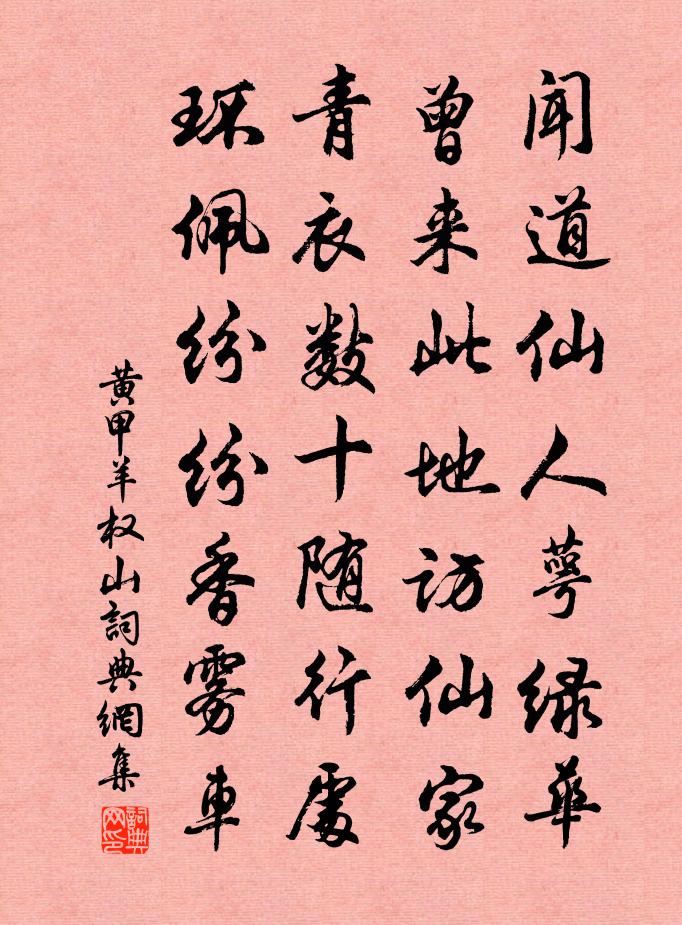 闻道仙人萼绿华
曾来此地访仙家
青衣数十随行处
环佩纷纷香雾车
黄甲羊权山詞典網集
詞典網印